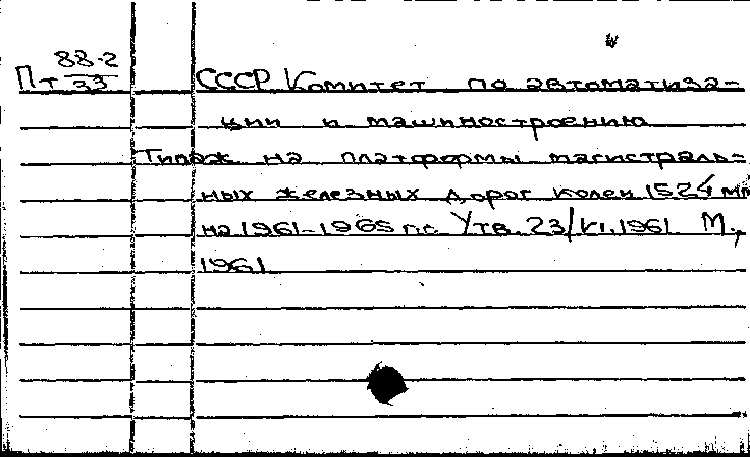 88-2
Пт 33
СССР Комитет по автоматиза-
ции и машиностроению
Типаж на платформы магистраль-
ных железных дорог колеи 1524 мм
на 1961-1965 г.г. Утв. 23/VI.1961 М.,
1961